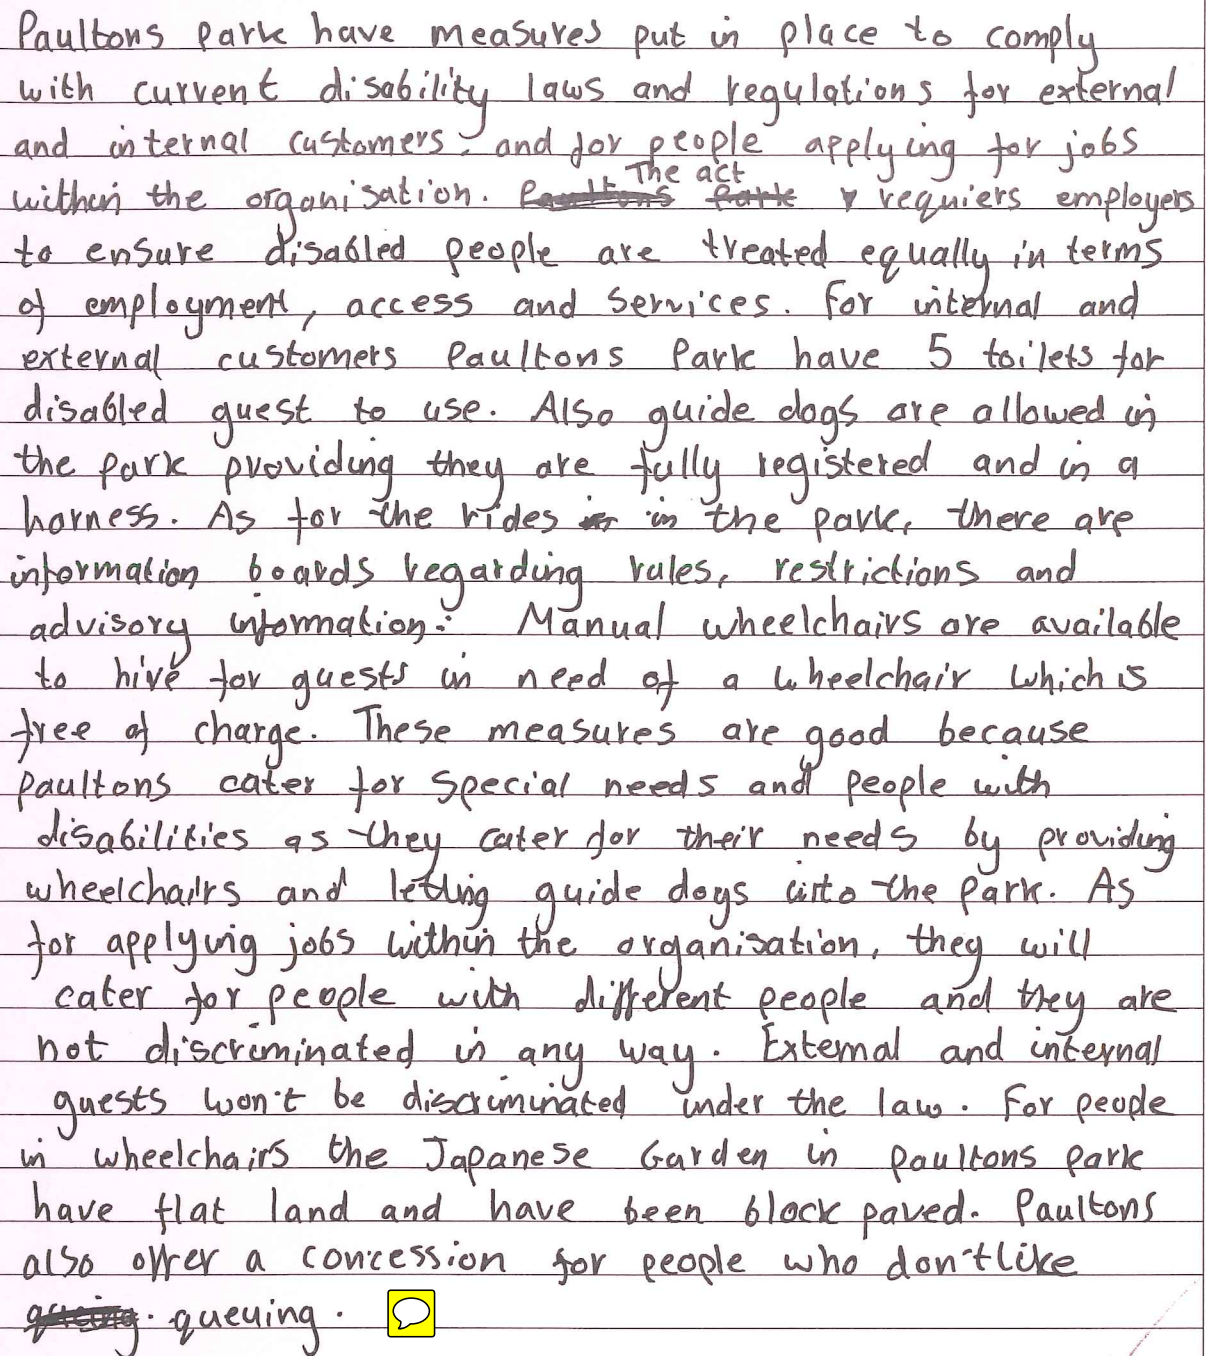 Paultons Park have measures put in place to comply
with current disability laws and regulations for external
and internal customers. and for people applying for jobs
within the organisation. Paultons Park The act requiers employers
to ensure disabled people are treated equally in terms
of employment, access and services. For internal and
external customers Paultons Park have 5 toilets for
disabled guest to use. Also guide dogs are allowed in
the park providing they are fully registered and in a
harness. As for the rides in the park, there are
information boards regarding rules, restrictions and
advisory information. Manual wheelchairs are available
to hire for guests in need of a wheelchair which is
free of charge. These measures are good because
Paultons cater for special needs and people with
disabilities as they cater for their needs by providing
wheelchairs and letting guide dogs into the park. As
for applying jobs within the organisation, they will
cater for people with different people and they are
not discriminated in any way. External and internal
guests won't be discriminated under the law. For people
in wheelchairs the Japanese Garden in Paultons Park
have flat land and have been block paved. Paultons
also offer a concession for people who don't like
queuing.